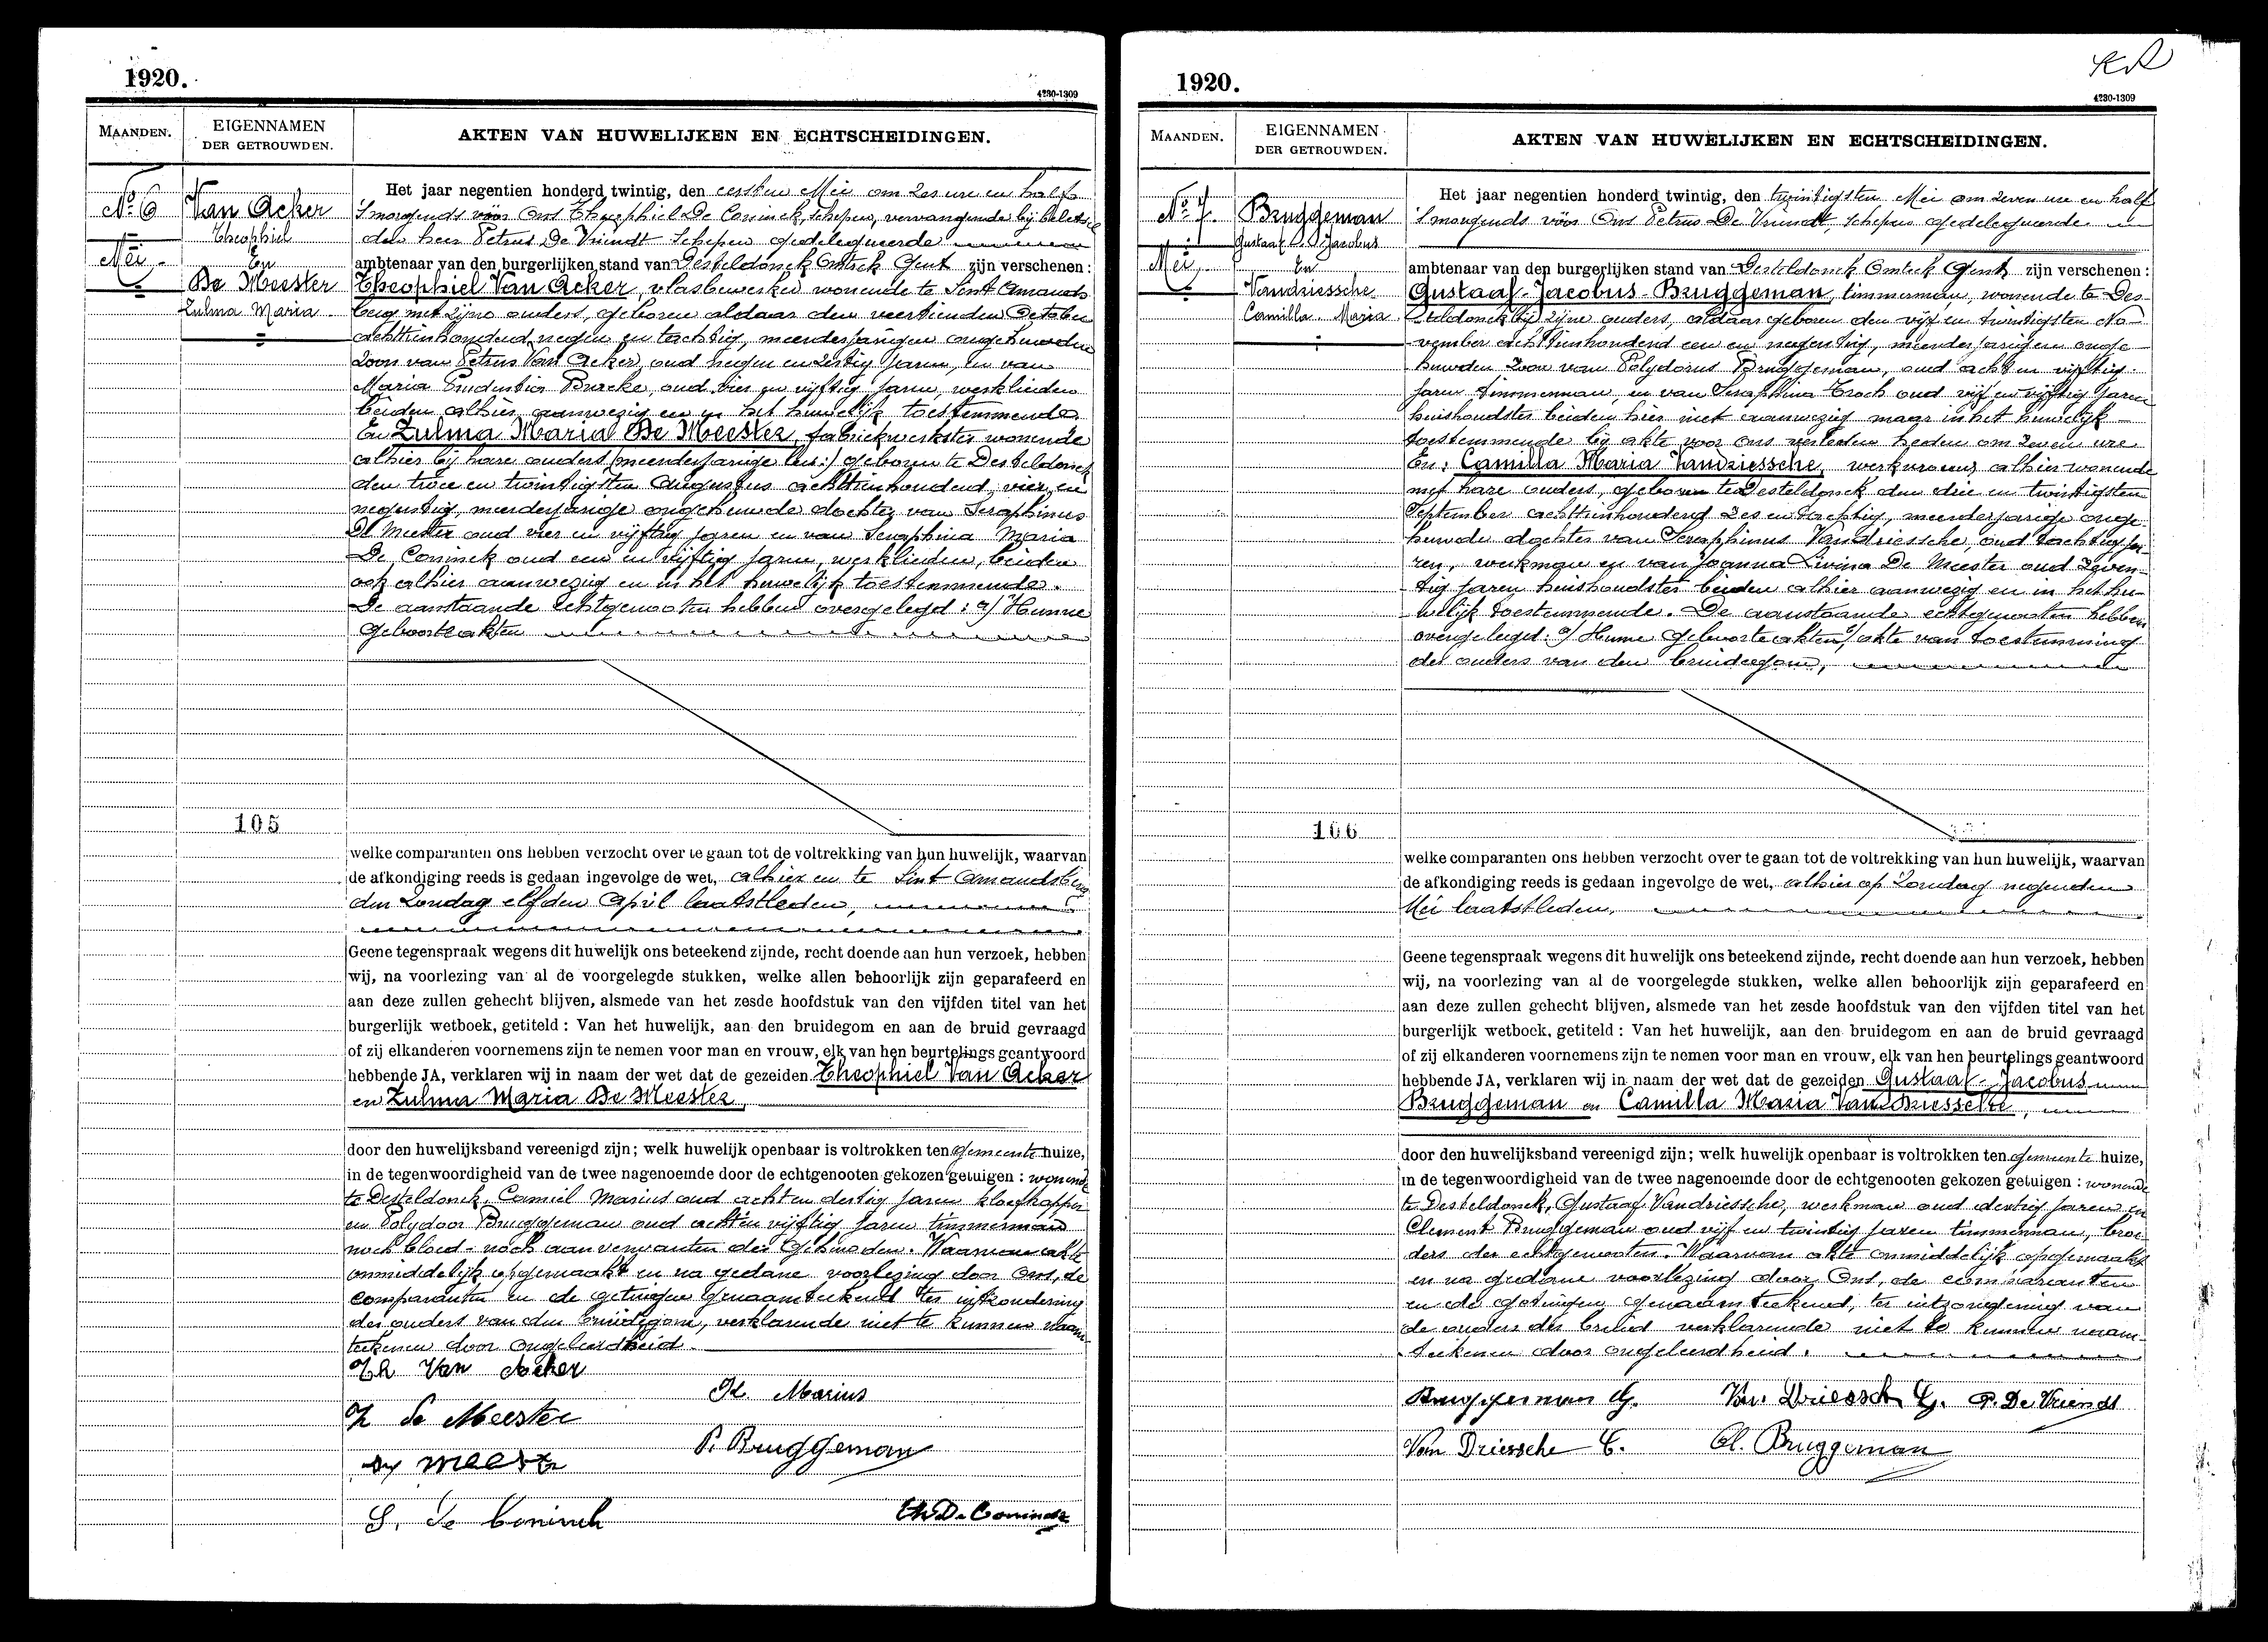 1920.
4230-1309
MAANDEN.
EIGENNAMEN
DER GETROUWDEN.
AKTEN VAN HUWELIJKEN EN ECHTSCHEIDINGEN.
No 6
Mei
Van Acker
Theophiel
En
De Meester
Zulma Maria
Het jaar negentien honderd twintig, den eersten Mei om zes ure en half
'smorgends vóór Ons Theophiel De Coninck, schepen, vervangende bij beletsel
den heer Petrus De Vriendt Schepen gedelegueerde
ambtenaar van den burgerlijken stand van Desteldonck Omtrek Gent zijn verschenen :
Theophiel Van Acker, vlasbewerker wonende te Sint Amands
berg met zijne ouders, geboren aldaar den veertienden October
achttienhonderd negen en tachtig, meerderjarigen ongehuwden
zoon van Petrus Van Acker oud negen en zestig jaren, en van
Maria Prudentia Burcke, oud vier en vijftig jaren, werklieden
beiden alhier aanwezig en in het huwelijk toestemmende
En Zulma Maria De Meester, fabriekwerkster wonende
alhier bij hare ouders geboren te Desteldonck
den twee en twintigsten Augustus achttienhonderd vier en
negentig, meerderjarige ongehuwde dochter van Seraphinus
De Meester oud vier en vijftig jaren en van Seraphina Maria
De Coninck oud een en vijftig jaren, werklieden, beiden
ook alhier aanwezig en in het huwelijk toestemmende.
De aanstaande echtgenooten hebben overgelegd : a/ Hunne
Geboorteakten
105
welke comparanten ons hebben verzocht over te gaan tot de voltrekking van hun huwelijk, waarvan
de afkondiging reeds is gedaan ingevolge de wet, alhier en te Sint Amandsberg
den Zondag elfden April laatstleden,
Geene tegenspraak wegens dit huwelijk ons beteekend zijnde, recht doende aan hun verzoek, hebben
wij, na voorlezing van al de voorgelegde stukken, welke allen behoorlijk zijn geparafeerd en
aan deze zullen gehecht blijven, alsmede van het zesde hoofdstuk van den vijfden titel van het
burgerlijk wetboek, getiteld : Van het huwelijk, aan den bruidegom en aan de bruid gevraagd
of zij elkanderen voornemens zijn te nemen voor man en vrouw, elk van hen beurtelings geantwoord
hebbende JA, verklaren wij in naam der wet dat de gezeiden Theophiel Van Acker
en Zulma Maria De Meester
door den huwelijksband vereenigd zijn; welk huwelijk openbaar is voltrokken ten Gemeente huize,
in de tegenwoordigheid van de twee nagenoemde door de echtgenooten gekozen getuigen : wonende
te Desteldonck, Camiel Marius oud acht en dertig jaren kloefkapper
en Polydoor Bruggeman oud acht en vijftig jaren timmerman
noch bloed- noch aanverwanten der Gehuwden. Waarvan akte
onmiddelijk opgemaakt en na gedane voorlezing door Ons, de
Comparanten en de getuigen Genaamteekend ter uitzondering
der ouders van den bruidegom, verklarende niet te kunnen naam-
teekenen door ongeleerdheid.
Th Van Acker
K. Marius
Z De Meester
P. Bruggeman
De Meester
S. De Coninck
Th De Coninck
1920.
4230-1309
MAANDEN.
EIGENNAMEN
DER GETROUWDEN.
AKTEN VAN HUWELIJKEN EN ECHTSCHEIDINGEN.
No 7.
Mei,
Bruggeman
Gustaaf Jacobus
En
Vandriessche
Camilla Maria
Het jaar negentien honderd twintig, den twintigsten Mei om zeven ure en half
'smorgends vóór Ons Petrus De Vriendt, schepen gedelegueerde
ambtenaar van den burgerlijken stand van Desteldonck Omtrek Gent zijn verschenen :
Gustaaf-Jacobus-Bruggeman, timmerman, wonende te Des-
teldonck bij zijne ouders, aldaar geboren den vijf en twintigsten No-
vember achttienhonderd een en negentig, meerderjarigen onge-
huwden zoon van Polydorus Bruggeman, oud acht en vijftig
jaren timmerman, en van Seraphina Troch oud vijf en vijftig jaren
huishoudster beiden hier niet aanwezig maar in het huwelijk
toestemmende bij akte voor ons verleden heden om zeven ure
En: Camilla Maria Vandriessche, werkvrouw alhier wonende
met hare ouders, geboren te Desteldonck den drie en twintigsten
September achttienhonderd zes en tachtig, meerderjarige onge-
huwde dochter van Seraphinus Vandriessche, oud tachtig ja-
ren, werkman en van Joanna Livina De Meester oud zeven-
tig jaren huishoudster beiden alhier aanwezig en in het hu-
welijk toestemmende. De aanstaande echtgenooten hebben
overgelegd: a/ Hunne geboorteakten b/ akte van toestemming
der ouders van den bruidegom,
106
welke comparanten ons hebben verzocht over te gaan tot de voltrekking van hun huwelijk, waarvan
de afkondiging reeds is gedaan ingevolge de wet, alhier op Zondag negenden
Mei laatstleden,
Geene tegenspraak wegens dit huwelijk ons beteekend zijnde, recht doende aan hun verzoek, hebben
wij, na voorlezing van al de voorgelegde stukken, welke allen behoorlijk zijn geparafeerd en
aan deze zullen gehecht blijven, alsmede van het zesde hoofdstuk van den vijfden titel van het
burgerlijk wetboek, getiteld : Van het huwelijk, aan den bruidegom en aan de bruid gevraagd
of zij elkanderen voornemens zijn te nemen voor man en vrouw, elk van hen beurtelings geantwoord
hebbende JA, verklaren wij in naam der wet dat de gezeiden Gustaaf-Jacobus
Bruggeman en Camilla Maria Van Driessche,
door den huwelijksband vereenigd zijn; welk huwelijk openbaar is voltrokken ten Gemeente huize,
in de tegenwoordigheid van de twee nagenoemde door de echtgenooten gekozen getuigen : wonende
te Desteldonck, Gustaaf Vandriessche, werkman oud dertig jaren en
Clement Bruggeman oud vijf en twintig jaren timmerman, broe-
ders der echtgenooten. Waarvan akte onmiddelijk opgemaakt
en na gedane voorlezing door Ons, de comparanten
en de getuigen genaamteekend, ter uitzondering van
de ouders der bruid verklarende niet te kunnen naam-
teekenen door ongeleerdheid.
Bruggeman G.
Van Driessche G.
P. De Vriendt
Van Driessche C.
Cl. Bruggeman